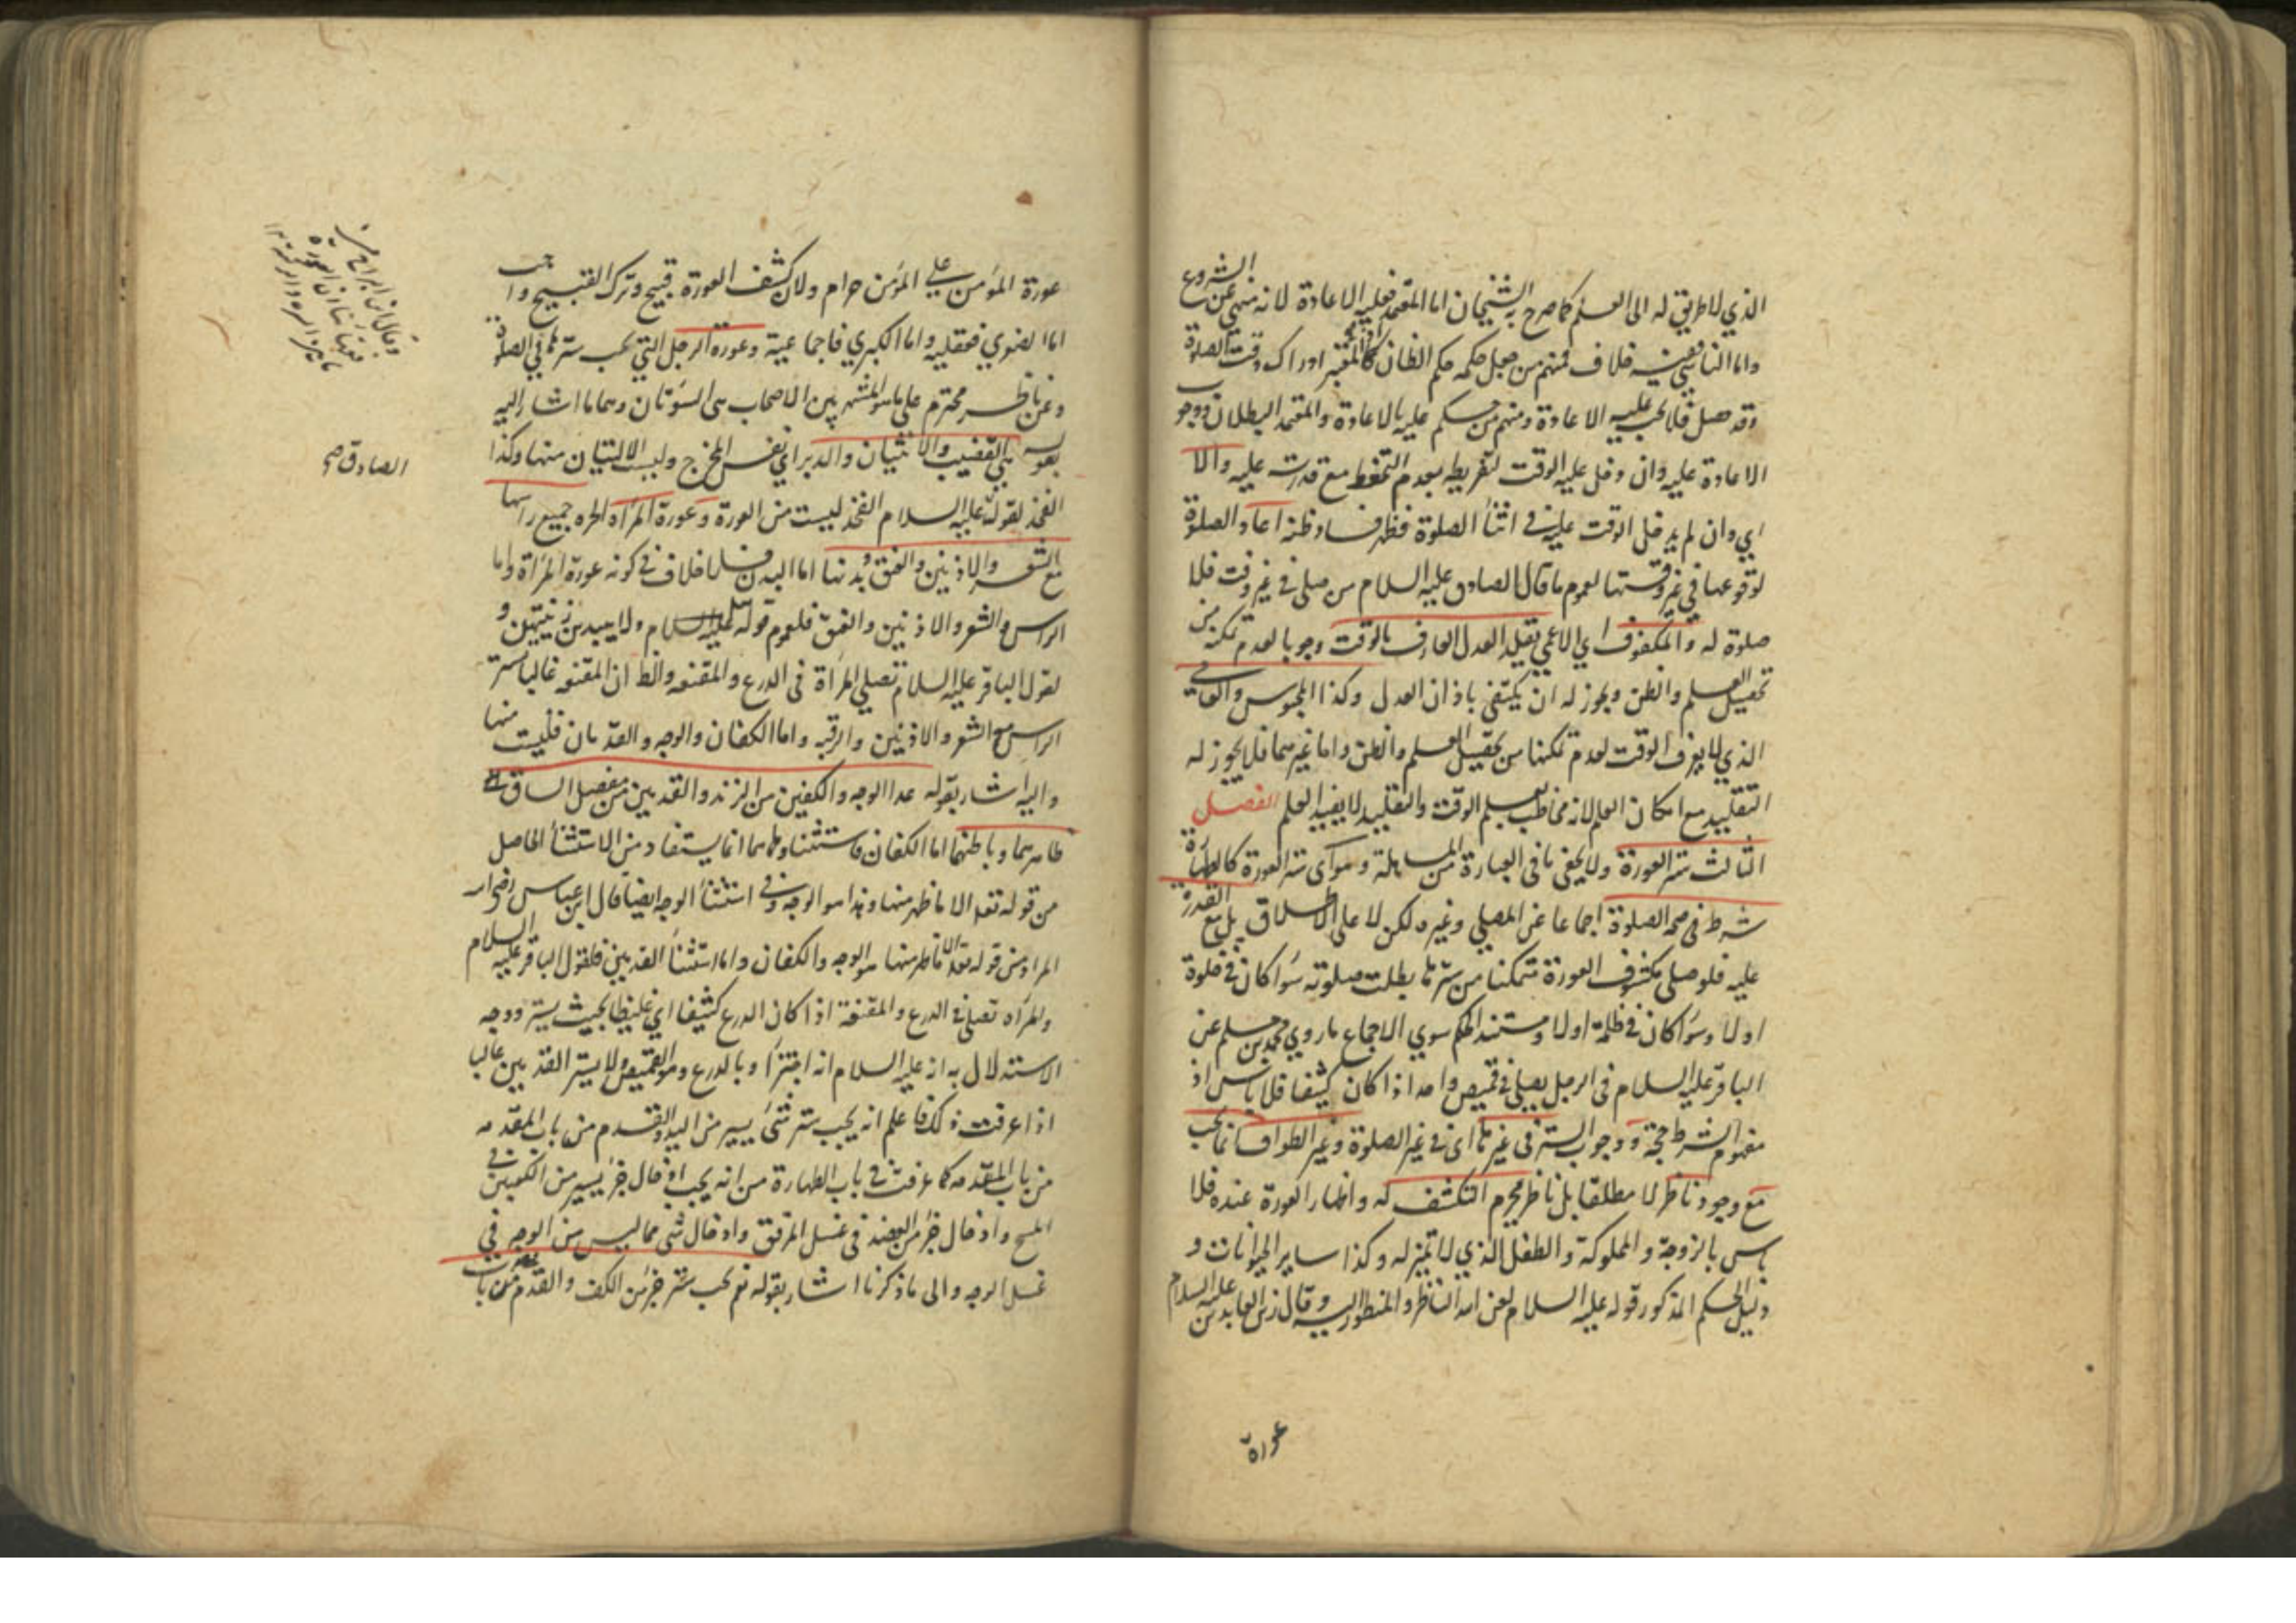 الذي لا طريق له الى العلم كما صرح به الشيخان اما المتعمد فعليه الاعادة لانه منهى عن الشروع
واما الناسي ففيه خلاف فمنهم من جعل حكمه حكم الظان اذ المعتبر ادراك وقت الصلوة
وقد حصل فلا يجب عليه الاعادة ومنهم من حكم عليه بالاعادة والمعتمد البطلان ووجوب
الاعادة عليه وان دخل عليه الوقت لتفريطه بعدم التحفظ مع قدرته عليه والا
اي وان لم يدخل الوقت عليه في اثناء الصلوة فظهر فساد ظنه اعاد الصلوة
لوقوعها في غير وقتها لعموم ما قال الصادق عليه السلام من صلى في غير وقت فلا
صلوة له والمكفوف اي الاعمى يقلد العدل العارف بالوقت وجوبا لعدم تمكنه من
تحصيل العلم والظن ويجوز له ان يكتفي باذان العدل وكذا المحبوس والعامي
الذي لا يعرف الوقت لعدم تمكنهما من تحصيل العلم والظن واما غيرهما فلا يجوز له
التقليد مع امكان العلم لانه مخاطب بعلم الوقت والتقليد لا يفيد العلم الفصل
الثالث ستر العورة ولا يخفى ما في العبارة من المساهلة وهو اى ستر العورة كالطهارة
شرط في صحة الصلوة اجماعا عن المصلي وغيره لكن لا على الاطلاق بل مع القدرة
عليه فلو صلى مكشوف العورة متمكنا من سترها بطلت صلوته سواء كان في خلوة
اولا وسواء كان في ظلمة اولا ومستند الحكم سوي الاجماع ما روي محمد بن مسلم عن
الباقر عليه السلام في الرجل يصلي في قميص واحد اذا كان كثيفا فلا باس اذ
مفهوم الشرط حجة ووجوب الستر في غيرها اى في غير الصلوة وغير الطواف انما يجب
مع وجود ناظر لا مطلقا بل ناظر يحرم التكشف له واظهار العورة عنده فلا
باس بالزوجة والمملوكة والطفل الذي لا تميز له وكذا ساير الحيوانات و
دليل الحكم المذكور قوله عليه السلام لعن الله الناظر والمنظور اليه وقال زين العابدين عليه السلام
عورة
عورة المؤمن على المؤمن حرام ولان كشف العورة قبيح وترك القبيح واجب
اما الصغري فعقلية واما الكبري فاجماعية وعورة الرجل التي يجب سترها في الصلوة
وعن ناظر محترم على ما هو المشهور بين الاصحاب هي السوتان وهما ما اشار اليه
بقوله هي القضيب والانثيان والدبر اي نفس المخرج وليست الاليتان منها وكذا
الفخذ لقوله عليه السلام الفخذ ليست من العورة وعورة المراة الحره جميع راسها
مع الشعر والاذنين والعنق وبدنها اما البدن فلا خلاف في كونه عورة المراة واما
الراس والشعر والاذنين والعنق فلعموم قوله ولا يبدين زينتهن و
لقول الباقر عليه السلام تصلي المراة في الدرع والمقنعه والظ ان المقنعه غالبا تستر
الراس مع الشعر والاذنين والرقبه واما الكفان والوجه والقدمان فليست منها
واليه اشار بقوله عدا الوجه والكفين من الزند والقدمين من مفصل الساق
ظاهرهما وباطنهما اما الكفان فاستثناوهما انما يستفاد من الاستثناء الحاصل
من قوله تعه الا ما ظهر منها وهذا هو الوجه في استثناء الوجه ايضا قال ابن عباس رضي الله
المراد من قوله تعه الا ما ظهر منها هو الوجه والكفان واما استثناء القدمين فلقول الباقر عليه السلام
والمراه تصلي في الدرع والمقنعة اذا كان الدرع كثيفا اي غليظا بحيث يستر ووجه
الاستدلال به انه عليه السلام اجتزأ بالدرع وهو القميص ولا يستر القدمين غالبا
اذا عرفت ذلك فاعلم انه يجب ستر شئ يسير من اليد والقدم من باب المقدمه
من باب المقدمه كما عرفت في باب الطهارة من انه يجب ادخال جزء يسير من الكعبين في
المسح وادخال جزء من العضد في غسل المرفق وادخال شى مما ليس من الوجه في
غسل الوجه والى ما ذكرنا اشار بقوله نعم يجب ستر جزء من الكف والقدم من باب
الصادق صح